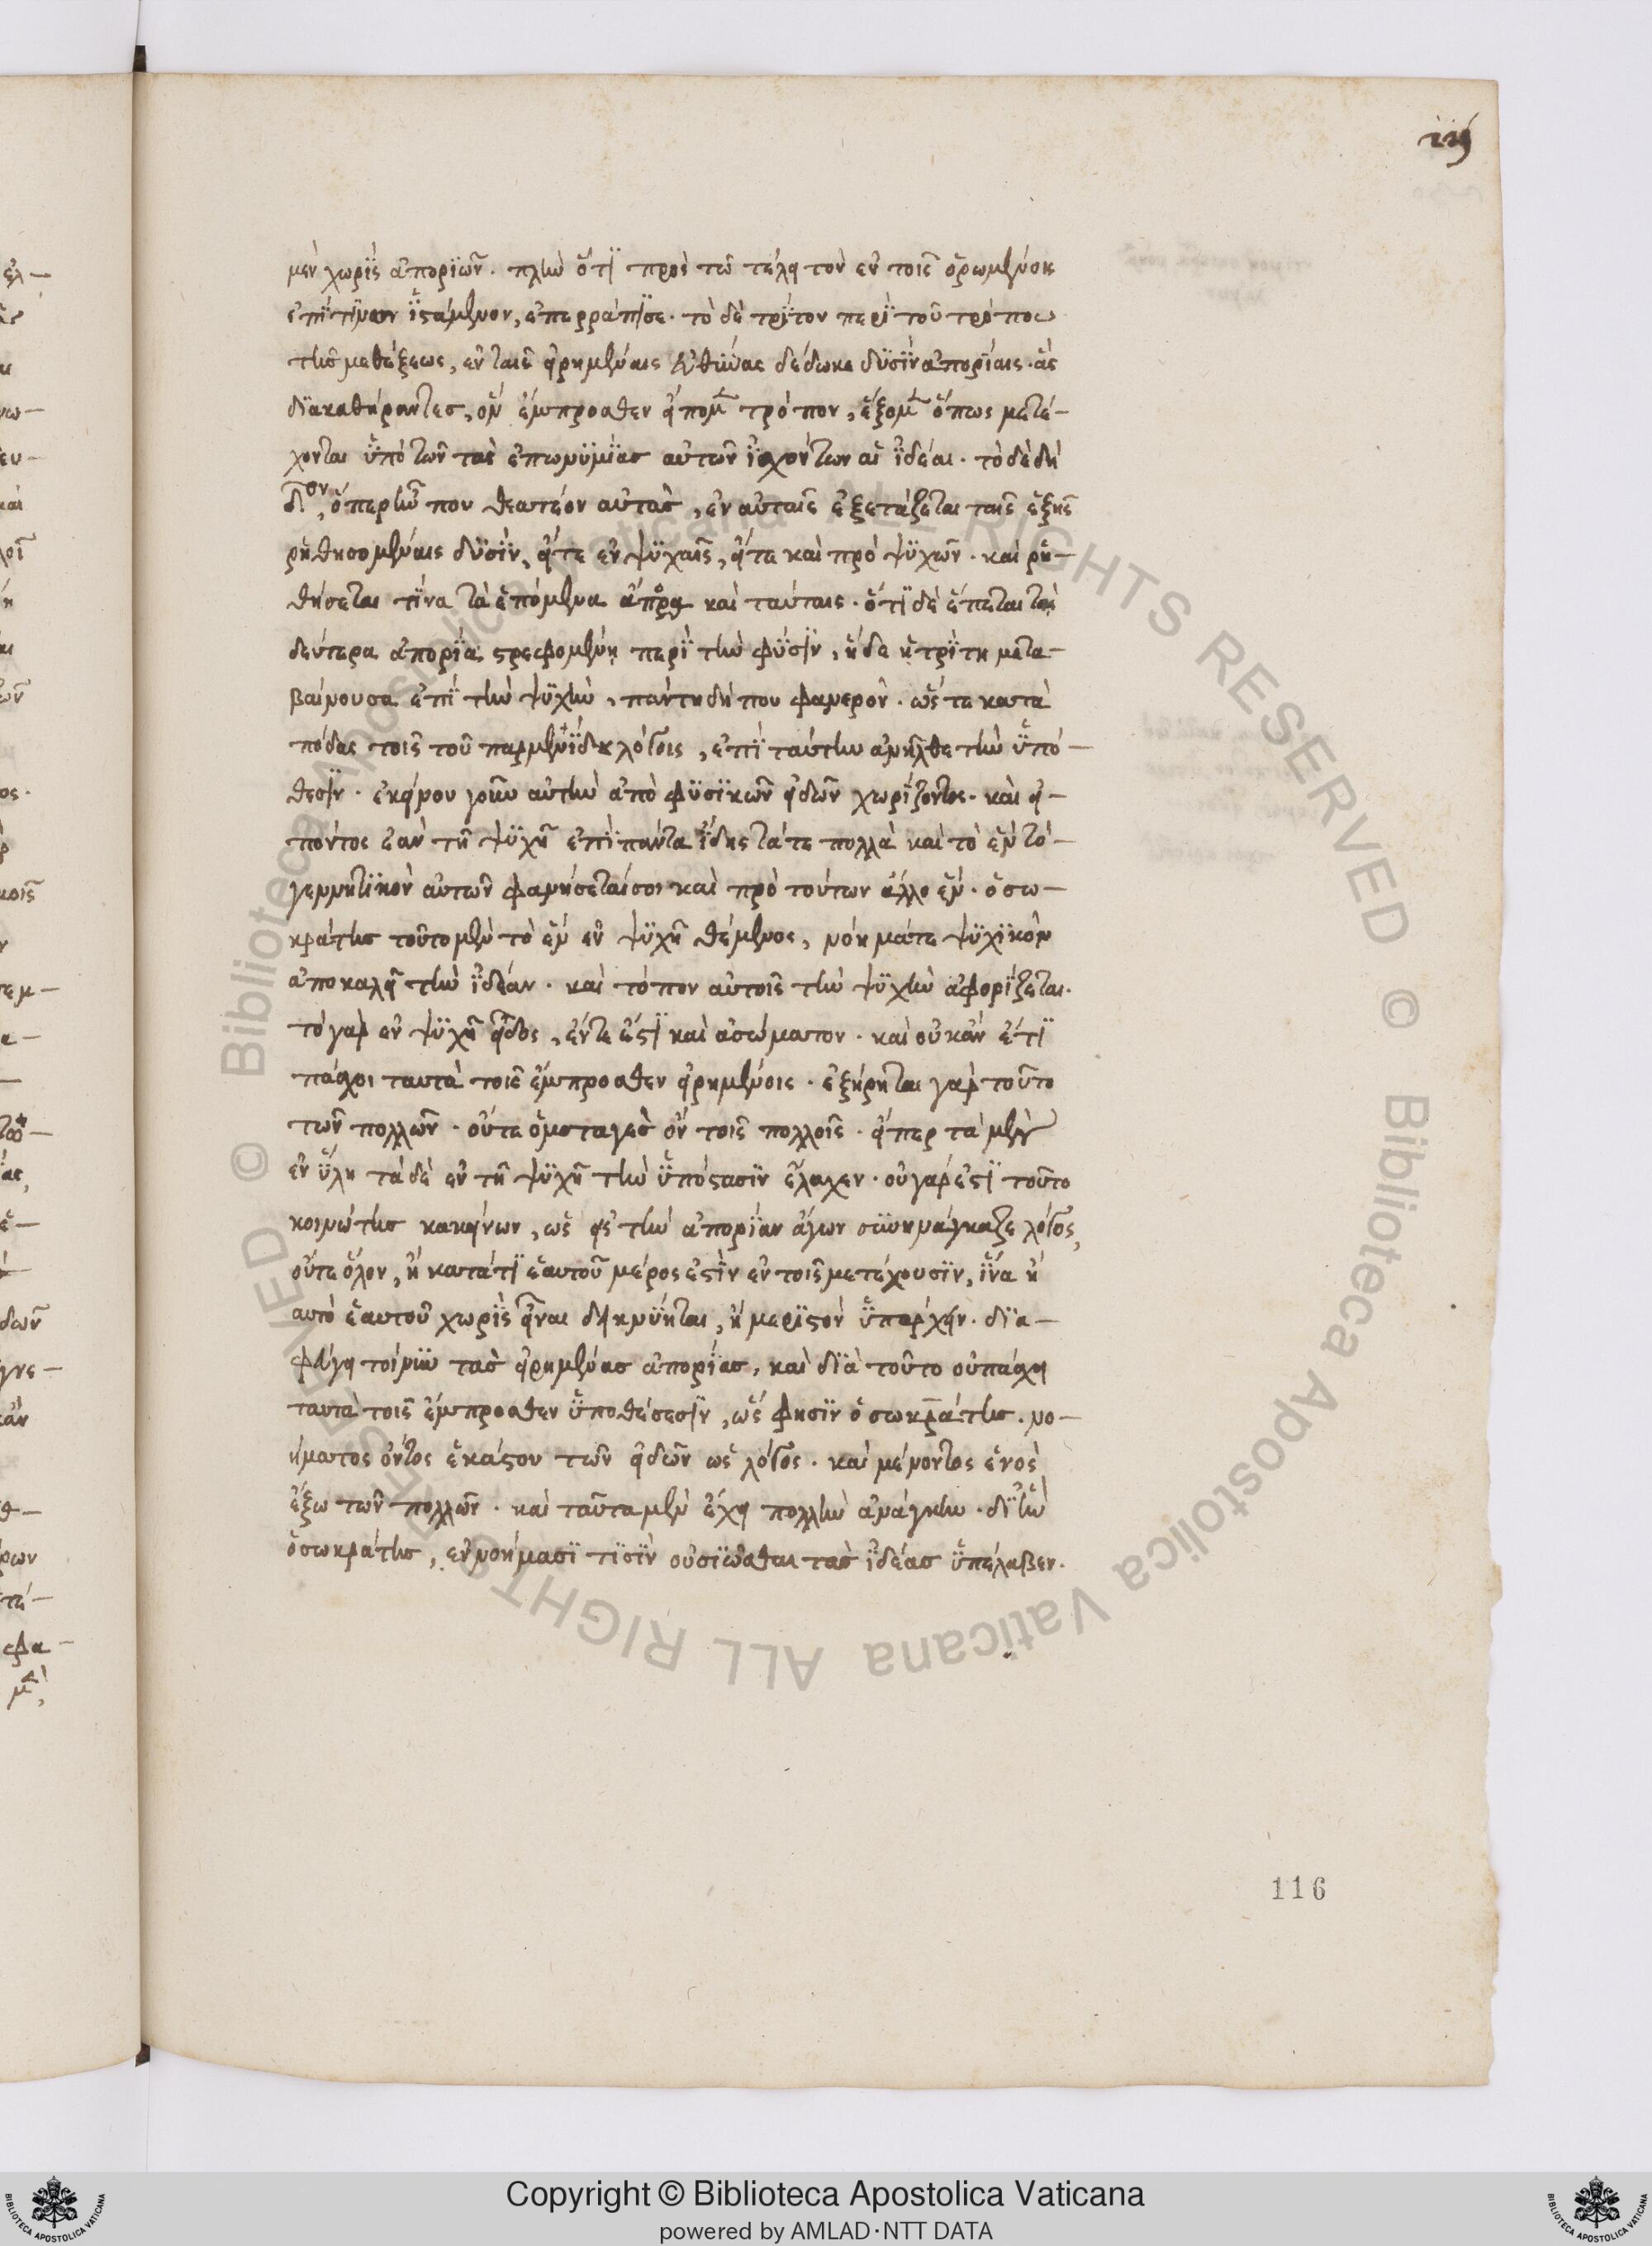 ριϛ
μὲν χωρὶς ἀποριῶν. πλὴν ὅτι πρὸς τῷ τέλει τὸν ἐν τοῖς ὁρωμένοις
ἐπίπνουν ἱστάμενον, ἐπερράπισε. τὸ δὲ τρίτον περὶ τοῦ τρόπου
τῆς μεθέξεως, ἐν ταῖς εἰρημέναις εὐθύνας δέδωκε δυσὶν ἀπορίαις. ἃς
διακαθήραντες, ὃν ἔμπροσθεν εἴπομεν τρόπον, ἕξομεν ὅπως μετέ-
χονται ὑπὸ τῶν τὰς ἐπωνυμίας αὐτῶν ἰσχόντων αἱ ἰδέαι. τὸ δὲ δὴ
δον, ὅπερ ἦν που θεατέον αὐτὰς, ἐν αὐταῖς ἐξετάζεται ταῖς ἑξῆς
ῥηθησομέναις δυσὶν, εἴτε ἐν ψυχαῖς, εἴτε καὶ πρὸ ψυχῶν. καὶ ῥη-
θήσεται τίνα τὰ ἑπόμενα ἄπορα καὶ ταύταις. ὅτι δὲ ἕπεται τῇ
δευτέρᾳ ἀπορίᾳ στρεφομένῃ περὶ τὴν φύσιν, ἥδε ἡ τρίτη μετα-
βαίνουσα ἐπὶ τὴν ψυχὴν, παντὶ δήπου φανερὸν. ὥς τε κατὰ
πόδας τοῖς τοῦ παρμενίδου λόγοις, ἐπὶ ταύτην ἀνῆλθε τὴν ὑπό-
θεσιν. ἐκείνου γοῦν αὐτὴν ἀπὸ φυσικῶν εἰδῶν χωρίζοντος. καὶ εἰ-
πόντος ἐὰν τῇ ψυχῇ ἐπὶ πάντα ἴδῃς τά τε πολλὰ καὶ τὸ ἓν τὸ
γεννητικὸν αὐτῶν φανήσεταί σοι καὶ πρὸ τούτων ἄλλο ἕν. ὁ σω-
κράτης τοῦτο μὲν τὸ ἓν ἐν ψυχῇ θέμενος, νόημά τε ψυχικὸν
ἀποκαλεῖ τὴν ἰδέαν. καὶ τόπον αὐτοῖς τὴν ψυχὴν ἀφορίζεται.
τὸ γὰρ ἐν ψυχῇ εἶδος, ἕν τε ἐστὶ καὶ ἀσώματον. καὶ οὐκ ἂν ἔτι
πάσχοι ταυτὰ τοῖς ἔμπροσθεν εἰρημένοις. ἐξῄρηται γὰρ τοῦτο
τῶν πολλῶν. οὔτε ὁμοταγὲς ὂν τοῖς πολλοῖς. εἴπερ τὰ μὲν
ἐν ὕλῃ τὰ δὲ ἐν τῇ ψυχῇ τὴν ὑπόστασιν ἔλαχεν. οὐ γάρ ἐστι τοῦτο
κοινώτης κἀκείνων, ὡς εἰς τὴν ἀπορίαν ἄγων συνηνάγκαζε λόγος,
οὔτε ὅλον, ἢ κατά τι ἑαυτοῦ μέρος ἐστὶν ἐν τοῖς μετέχουσιν, ἵνα ἢ
αὐτὸ ἑαυτοῦ χωρὶς εἶναι δεικνύηται, ἢ μεριστὸν ὑπάρχειν. δια-
φεύγει τοίνυν τὰς εἰρημένας ἀπορίας, καὶ διὰ τοῦτο οὐ πάσχει
ταυτὰ τοῖς ἔμπροσθεν ὑποθέσεσιν, ὥς φησιν ὁ σωκράτης. νο-
ήματος ὄντος ἑκάστου τῶν εἰδῶν ὡς λόγος. καὶ μένοντος ἑνὸς
ἔξω τῶν πολλῶν. καὶ ταῦτα μὲν ἔχει πολλὴν ἀνάγκην. δι' ἣν
ὁ σωκράτης, ἐν νοήμασι τισὶν οὐσιῶσθαι τὰς ἰδέας ὑπέλαβεν.
116
Copyright © Biblioteca Apostolica Vaticana
powered by AMLAD·NTT DATA